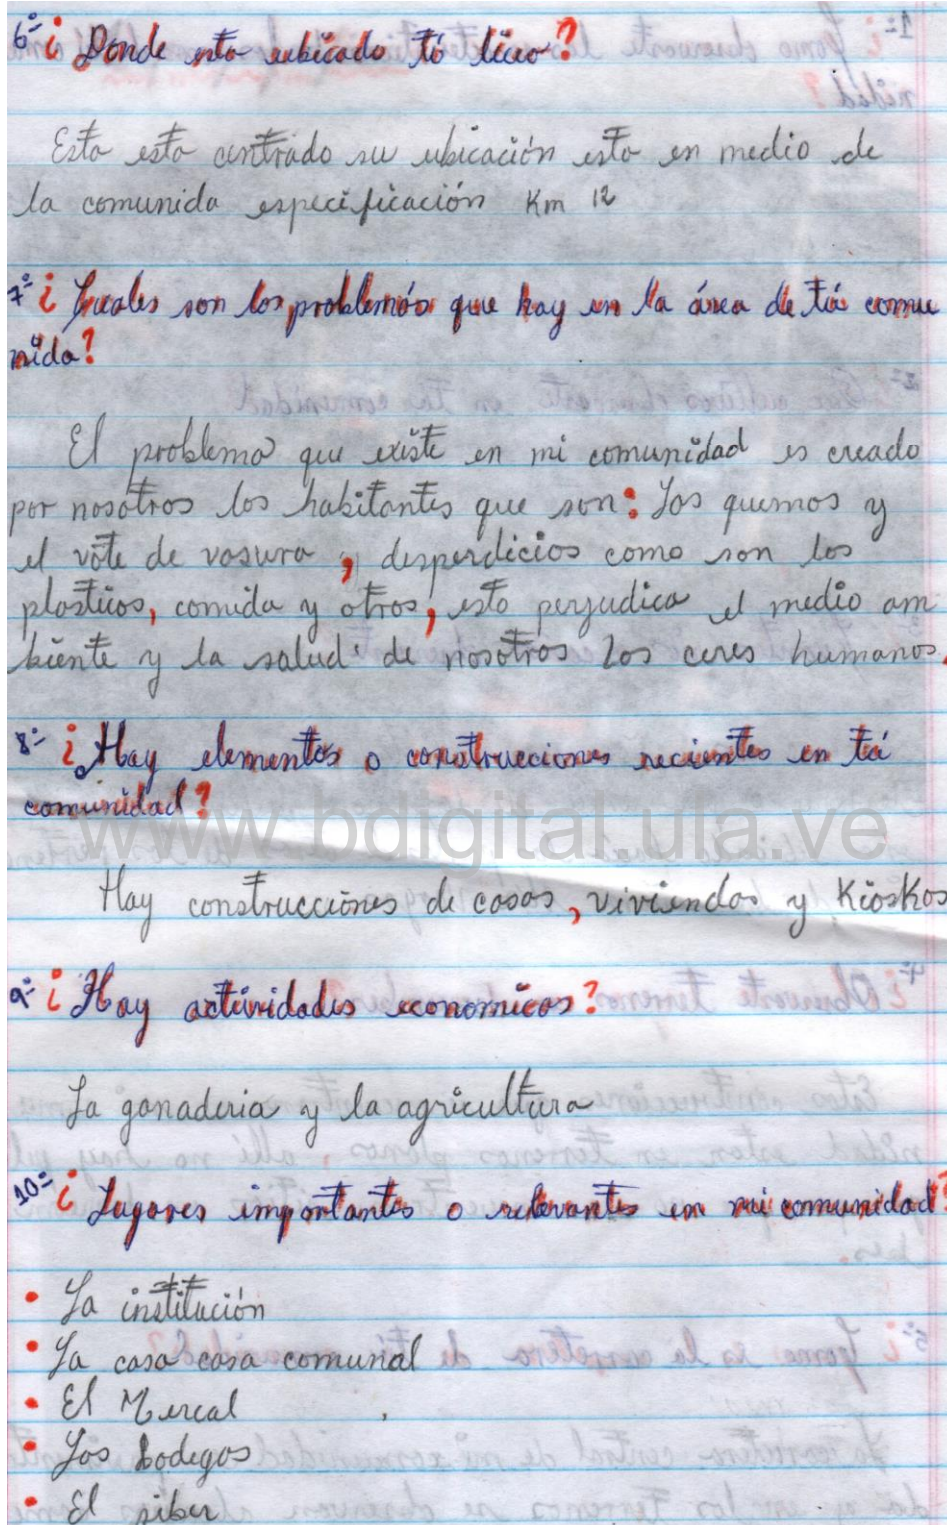 6º- ¿Donde esta ubicado tú liceo?
Esta esta centrado su ubicación esta en medio de
la comunida especificación Km 12
7º- ¿Cuales son los problemás que hay en la área de tú comu
nida?
El problema que existe en mi comunidad es creado
por nosotros los habitantes que son: Las quemas y
el vote de vasura, desperdicios como son los
plasticos, comida y otros, esto perjudica el medio am
biente y la salud de nosotros los ceres humanos.
8º- ¿Hay elementos o construcciones recientes en tú
comunidad?
www.bdigital.ula.ve
Hay construcciones de casas, viviendas y Kioskos
9º- ¿Hay actividades economicas?
La ganaderia y la agricultura
10º- ¿Lugares importantes o relevantes en mi comunidad?
• La institución
• La casa casa comunal
• El Mercal
• Las bodegas
• El siber